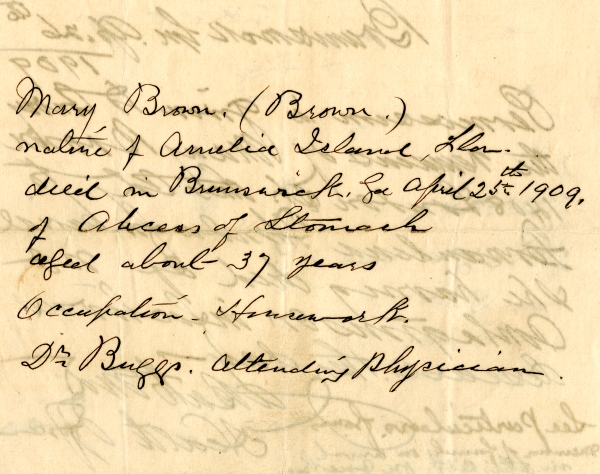 Mary Brown. (Brown.)
native of Amelia Island, Fla.
died in Brunswick, Ga April 25th 1909.
of Abcess of Stomach
aged about 37 years
Occupation - Housework.
Dr Buggs. attending Physician.